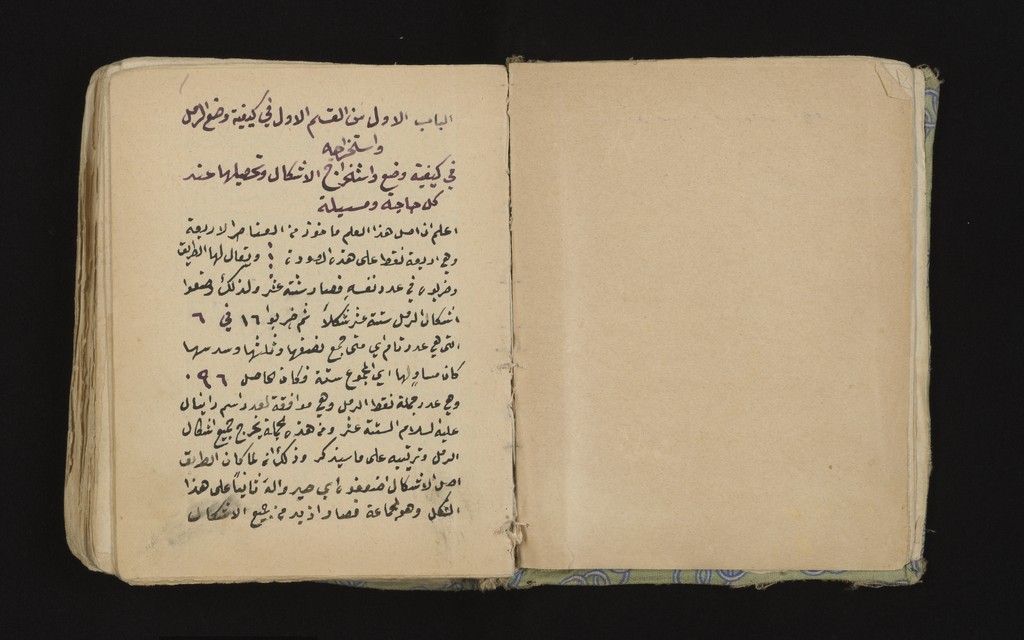 الباب الاول من القسم الاول في كيفية وضع الرمل
واستخراجه
في كيفية وضع واستخراج الاشكال وتحصيلها عند
كل حاجة ومسيلة
اعلم ان اصل هذا العلم ماخوذ من العناصر الاربعة
وهي اربعة نقط على هذه الصورة ⁞ ويقال لها الطريق
وضربوه في عدد نفسه فصار ستة عشر ولذلك وضعوا
اشكال الرمل ستة عشر شكلاً ثم ضربوا ١٦ في ٦
التي هي عدد تام اي متى جمع نصفها وثلثها وسدسها
كان مساوٍ لها اي المجموع ستة فكان الحاصل ٠٩٦
وهي عدد جملة نقط الرمل وهي موافقة لعدد اسم دانيال
عليه السلام الستة عشر ومن هذه الجملة يخرج جميع اشكال
الرمل وترتيبه على ما سيذكر وذلك انه لما كان الطريق
اصل الاشكال اضعفوه اي صيروا له ثانياً على هذا
الشكل وهو الجماعة فصار ازيد من جميع الاشكال